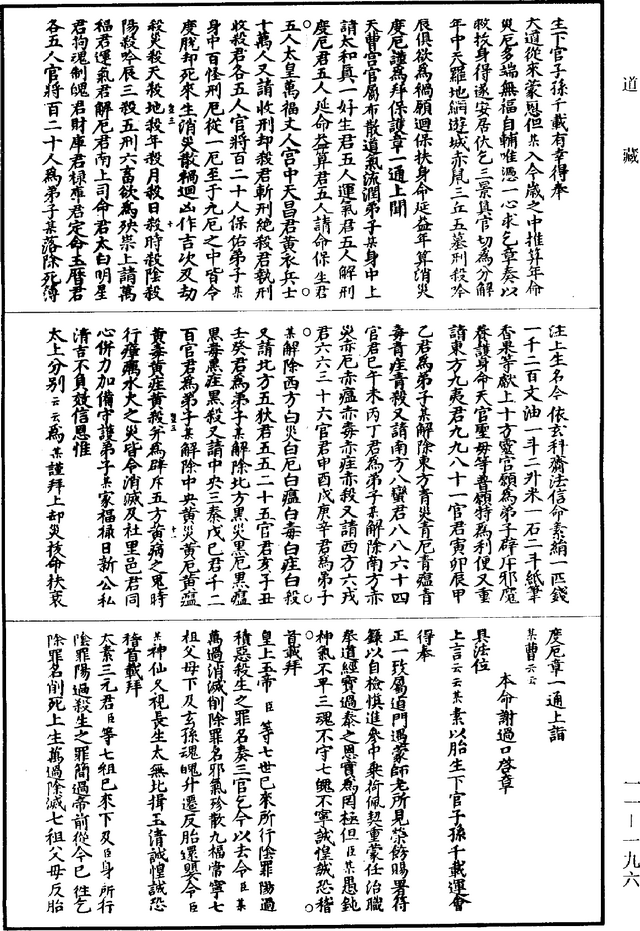 道藏
生下官子孫千載有幸得奉
大道從來蒙恩但某入今歲之中推算年命
災厄多端無福自輔唯憑一心求乞章奏以
救拔身得遂安居伏乞三景真官切為分解
年中天羅地網遊城赤鼠三丘五墓刑殺吟
辰俱欲為禍願迴保扶身命延益年算消災
度厄謹為拜保護章一通上聞
天曹宮官屬布散道氣流潤弟子某身中上
請太和真一好生君五人運氣君五人解刑
度厄君五人延命益算君五人請命保生君
五人太皇萬福丈人宮中天昌君黃衣兵士
十萬人又請收刑却殺君斬刑絕殺君執刑
收殺君各五人官將百二十人保佑弟子某
身中百怪刑厄從一厄至于九厄之中皆令
度脫却死來生消災散禍迴凶作吉次及劫
殺災殺天殺地殺年殺月殺日殺時殺陰殺
陽殺吟辰三殺五刑六害欲為殃祟上請萬
福君運氣君解厄君南上司命君太白明星
君拘魂制魄君財庫君祿庫君定命玉曆君
各五人官將百二十人為弟子某落除死簿
注上生名今依玄科齎法信命素絹一匹錢
一千二百文油一斗二升米一石二斗紙筆
香果等獻上十方靈官願為弟子辟斥邪魔
養護身命天官聖母等普願特為利便又重
請東方九夷君九九八十一官君寅卯辰甲
乙君為弟子某解除東方青災青厄青瘟青
毒青疰青殺又請南方八蠻君八八六十四
官君巳午未丙丁君為弟子某解除南方赤
災赤厄赤瘟赤毒赤疰赤殺又請西方六戎
君六六三十六官君申酉戌庚辛君為弟子
某解除西方白災白厄白瘟白毒白疰白殺
又請北方五狄君五五二十五官君亥子丑
壬癸君為弟子某解除北方黑災黑厄黑瘟
黑毒黑疰黑殺又請中央三秦戊己君千二
百官君為弟子某解除中央黃災黃厄黃瘟
黃毒黃疰黃殺并為辟斥五方黃病之鬼時
行瘴癘水火之災皆令消滅及社里邑君同
心併力加備守護弟子某家福祿日新公私
清吉不負效信恩惟
太上分別云云為某謹拜上却災扶命扶衰
度厄章一通上詣
某曹云云
本命謝過口啓章
具法位
上言云云某素以胎生下官子孫千載運會
得奉
正一玫屬道門遇蒙師老所見榮飾賜署符
籙以自檢慎進參中乘荷佩契重蒙任治職
奉道經寶過泰之恩實為罔極但臣某愚鈍
神氣不平三魂不守七魄不寧誠惶誠恐稽
首載拜
皇上玉帝臣等七世已來所行陰罪陽過
積惡殺生之罪名奏三官乞今以去令臣某
萬過消滅削除罪名邪氣殄散九福常寧七
祖父母下及玄孫魂魄升遷反胎還嬰令臣
某神仙久視長生太無比揖玉清誠惶誠恐
稽首載拜
太素三元君臣等七祖已來下及臣身所行
陰罪陽過殺生之罪簡過帝前從今已往乞
除罪名削死上生萬過除滅七祖父母反胎
一一—一九六